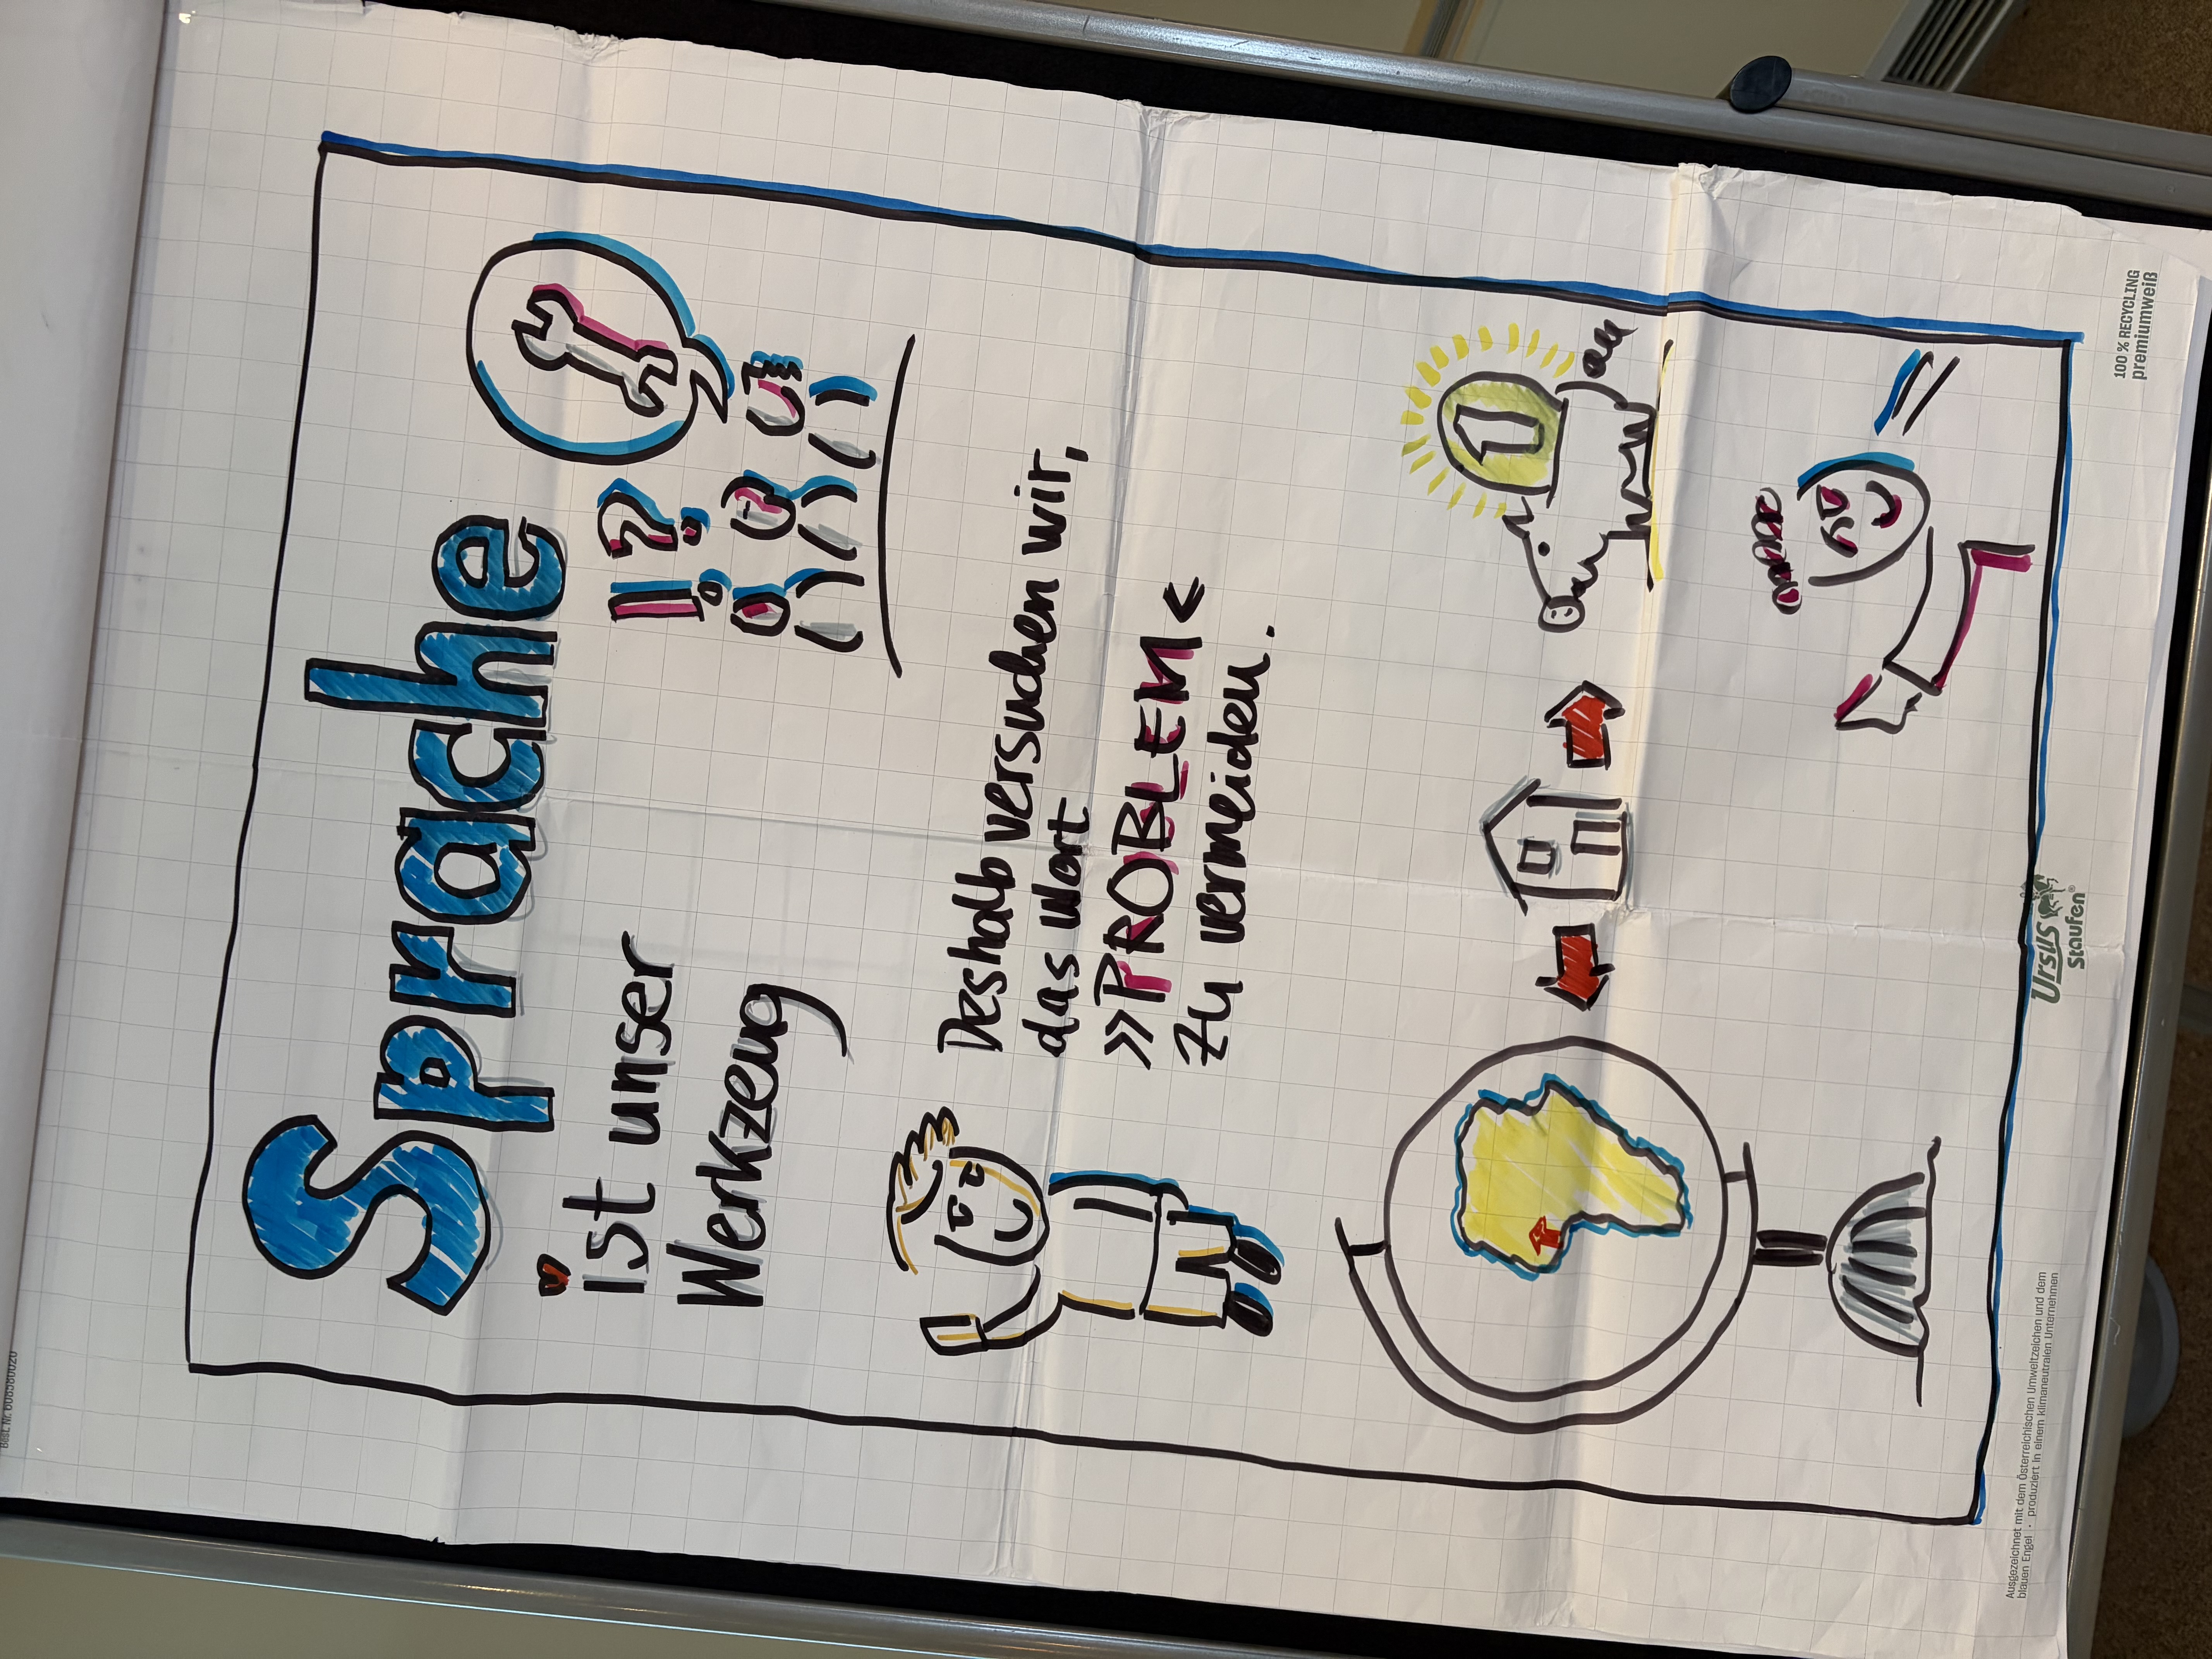 Sprache
ist unser
Werkzeug
!?
Deshalb versuchen wir,
das Wort
>>PROBLEM<
zu vermeiden.
1
100% RECYCLING
premiumweiß
URSUS
Staufen®
Ausgezeichnet mit dem Österreichischen Umweltzeichen und dem
blauen Engel · produziert in einem klimaneutralen Unternehmen